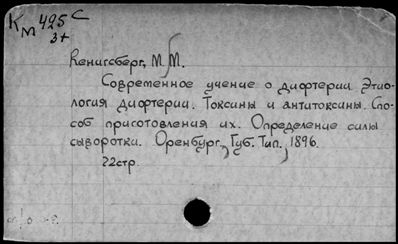 Км 425 С
3+
Кенигсберг, М М.
Современное учение о дифтерии. Этио-
логия дифтерии. Токсины и антитоксины. Спо-
соб приготовления их. Определение силы
сыворотки. Оренбург, Губ. Тип., 1896.
22стр.